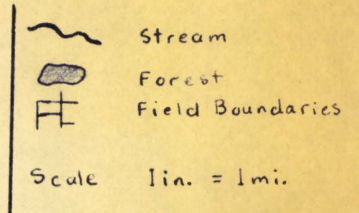 Stream
Forest
Field Boundaries
Scale 1in. = 1mi.